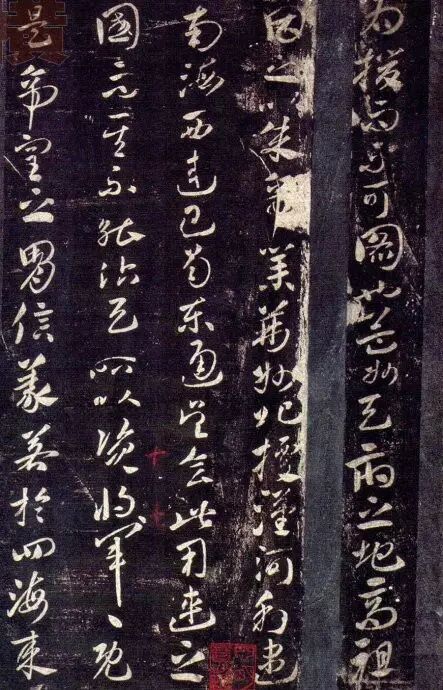 为援而不可圖也益州天府之地高祖
因之以成帝業荊州北據漢沔利盡
南海西巴蜀東通吳會此用武之
國不能天所以資將軍〻既
是帝室之胄信義著於四海